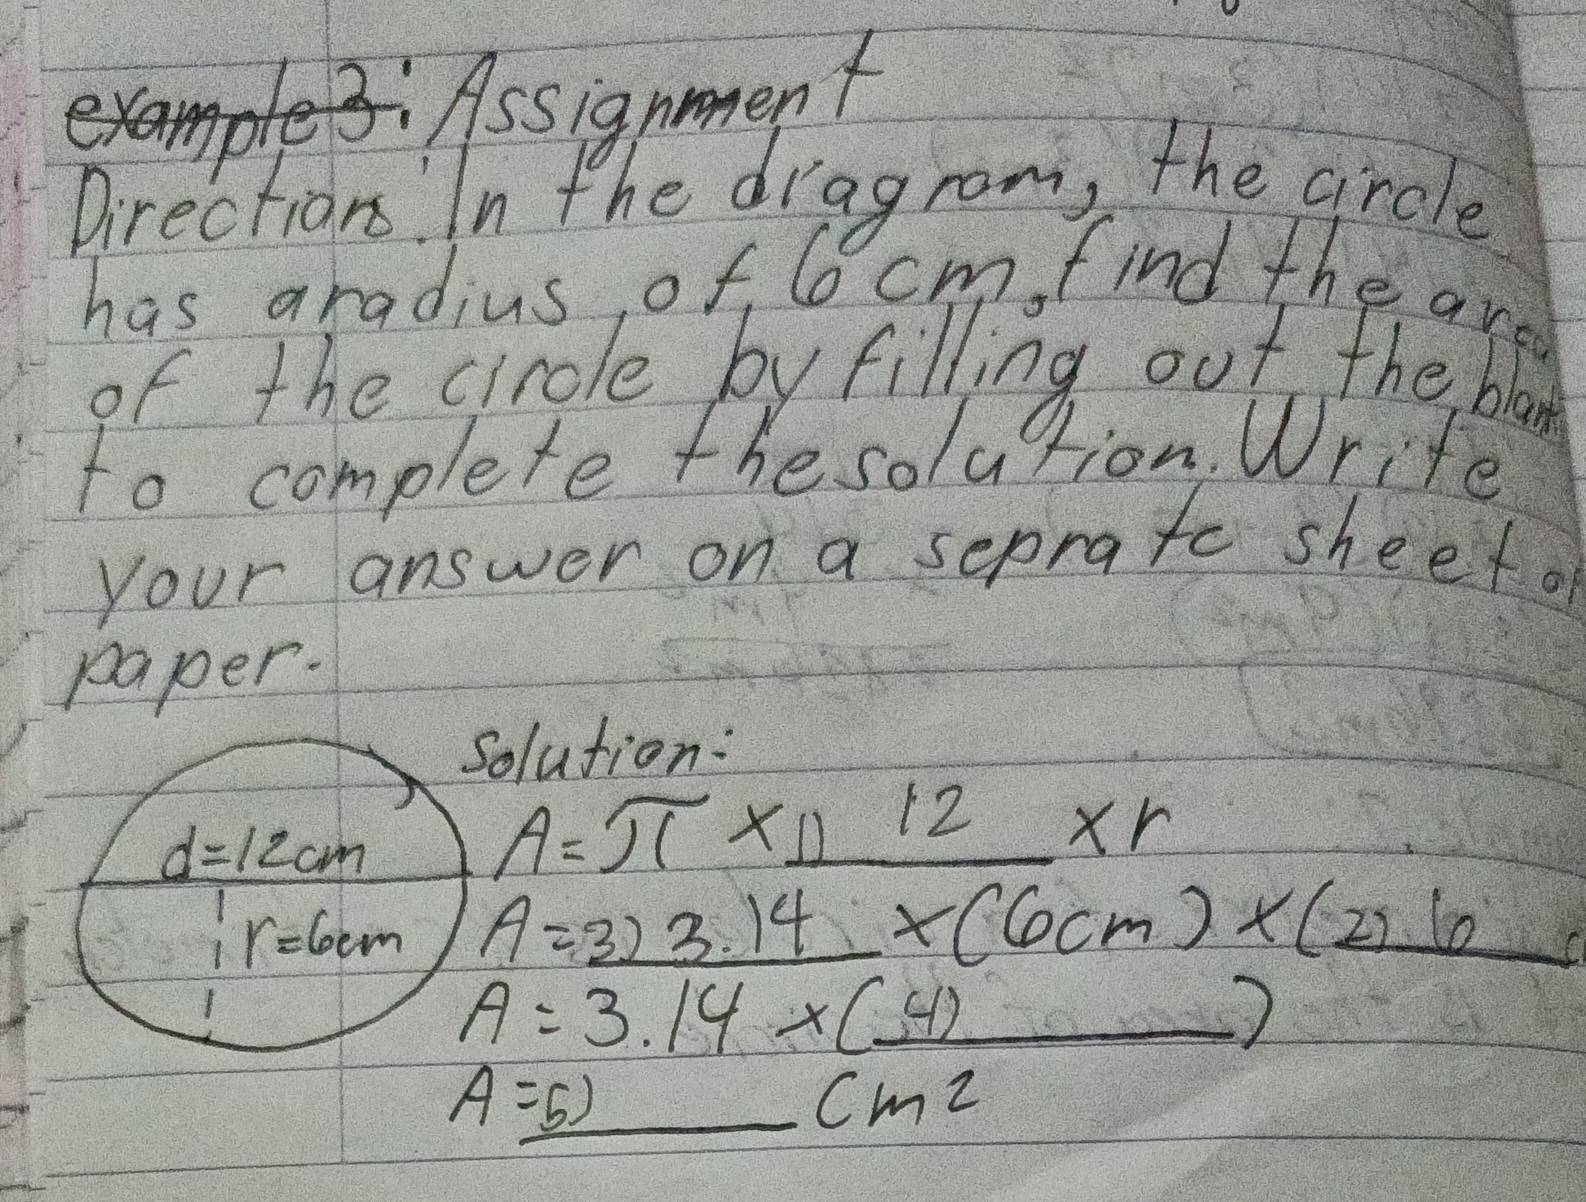 example 3: Assignment
Direction: In the diagram, the circle
has a radius of 6 cm, find the area
of the circle by filling out the blank
to complete the solution. Write
your answer on a seprate sheet of
paper.
Solution:
d=12cm
r=6cm
A=π × 1) 12 × r
A=3) 3.14 × (6cm) × (2) 6
A=3.14 × (4) )
A=5) cm2